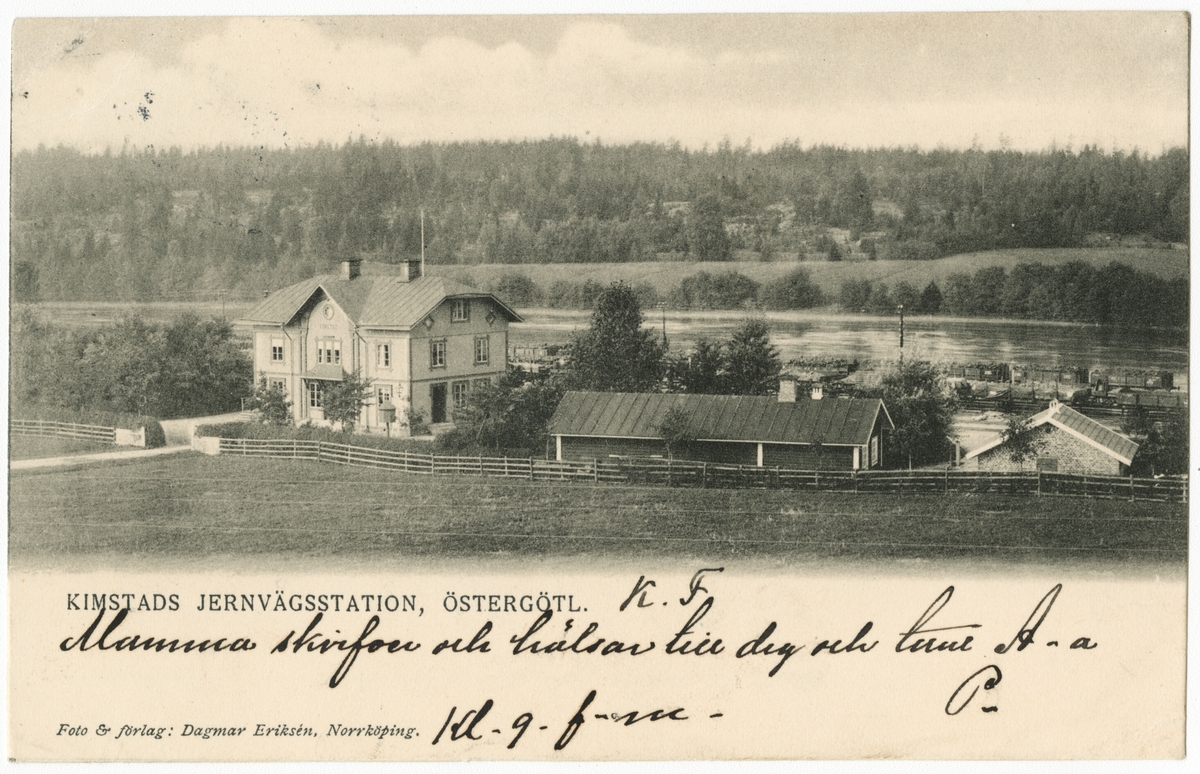 KIMSTADS JERNVÄGSSTATION, ÖSTERGÖTL.
K. F.
Mamma skrifver och hälsar till dig och A-a
P-
Foto & förlag: Dagmar Eriksén, Norrköping.
Kl-9-f-m-